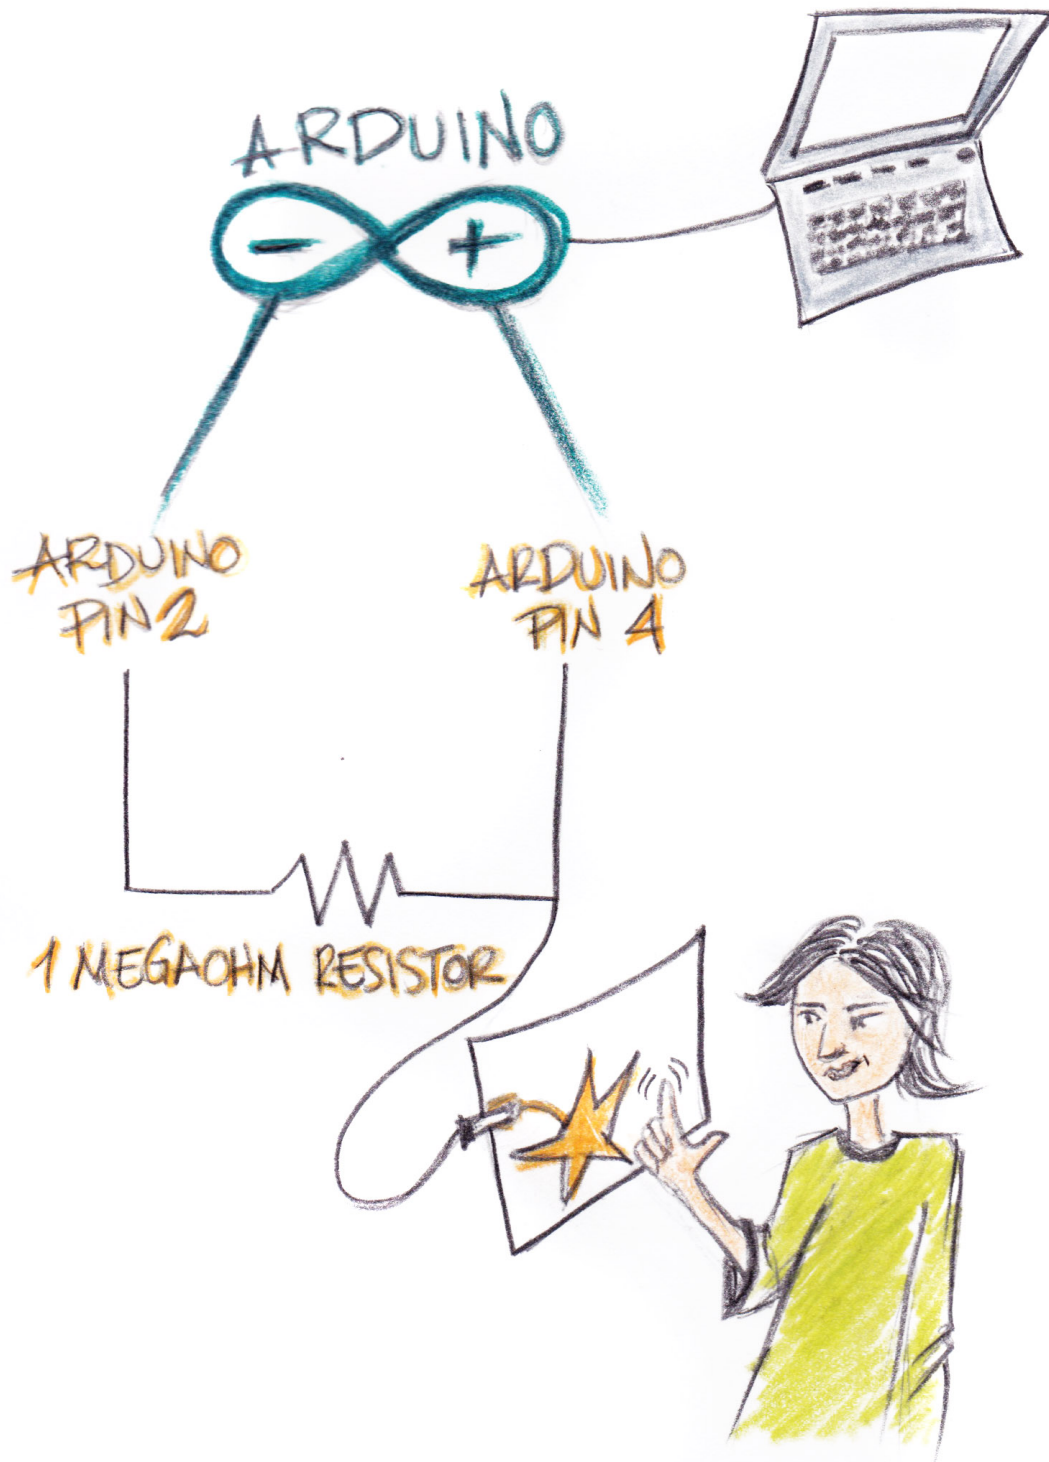 ARDUINO
- +
ARDUINO
PIN 2
ARDUINO
PIN 4
1 MEGAOHM RESISTOR